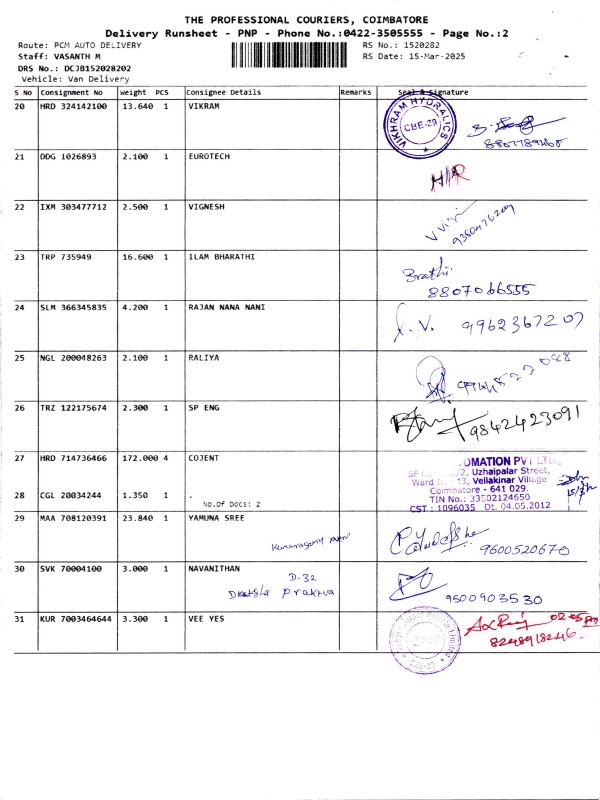 THE PROFESSIONAL COURIERS, COIMBATORE
Delivery Runsheet - PNP - Phone No.:0422-3505555 - Page No.:2
Route: PCM AUTO DELIVERY RS No.: 1520282
Staff: VASANTH M RS Date: 15-Mar-2025
DRS No.: DCJB152028202
Vehicle: Van Delivery
S No Consignment No Weight PCS Consignee Details Remarks Seal & Signature
20 HRD 324142100 13.640 1 VIKRAM
VIKHRAM HYDRALICS
CBE-29
21 DDG 1026893 2.100 1 EUROTECH
22 IXM 303477712 2.500 1 VIGNESH
23 TRP 735949 16.600 1 ILAM BHARATHI
Brathi
8807066555
24 SLM 366345835 4.200 1 RAJAN NANA NANI
9962367207
25 NGL 200048263 2.100 1 RALIYA
26 TRZ 122175674 2.300 1 SP ENG
9842423091
27 HRD 714736466 172.000 4 COJENT
OMATION PVT LTD
Uzhaipalar Street,
Ward 13, Vellakinar Village
Coimbatore - 641 029.
TIN No.: 33502124650
CST : 1096035 Dt. 04.05.2012
28 CGL 20034244 1.350 1 .
No.Of Docs: 2
29 MAA 708120391 23.840 1 YAMUNA SREE
9600520670
30 SVK 70004100 3.000 1 NAVANITHAN
D-32
9500903530
31 KUR 7003464644 3.300 1 VEE YES
02.05 pm
8248918246
CBE-29